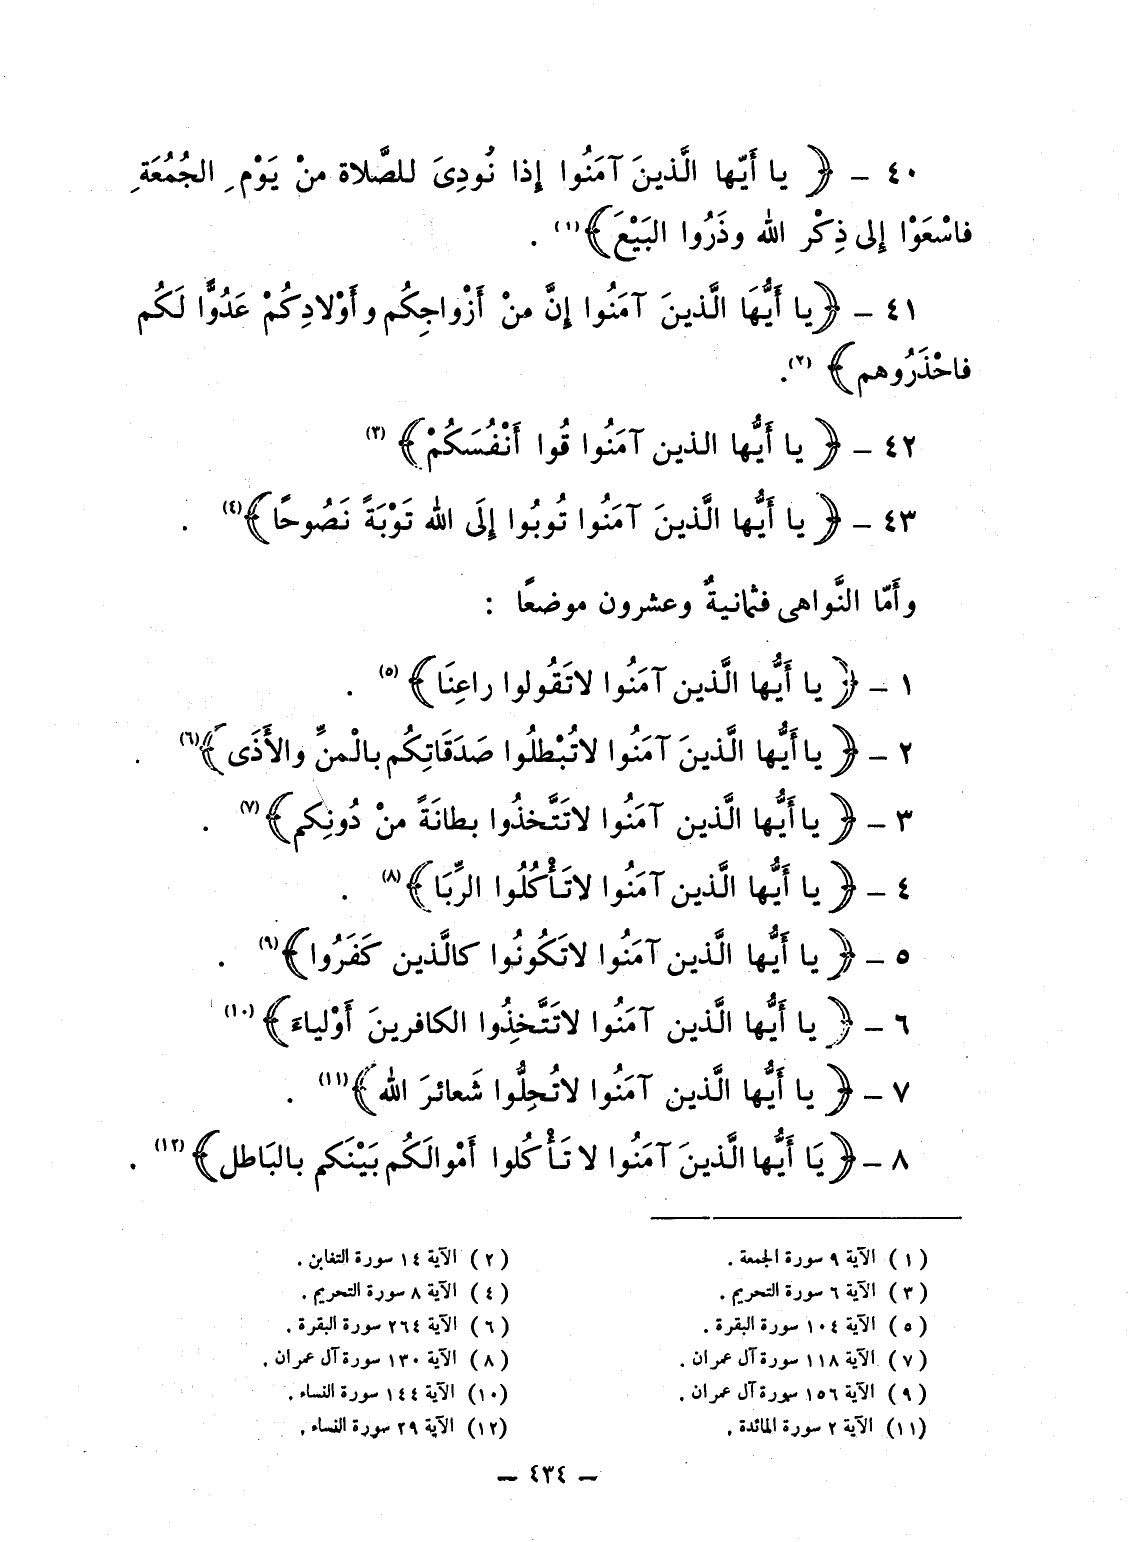 ٤٠ – ﴿ يا أَيّها الَّذينَ آمَنُوا إذا نُودِىَ للصَّلاة منْ يَوْمِ الجُمُعَةِ
فاسْعَوْا إلى ذِكْر الله وذَرُوا البَيْعَ ﴾(١) .
٤١ – ﴿ يا أَيُّهَا الَّذينَ آمَنُوا إنَّ منْ أَزْواجِكُم وأَوْلادِكُمْ عَدُوًّا لَكُم
فاحْذَرُوهم ﴾ (٢).
٤٢ – ﴿ يا أَيُّها الذين آمَنُوا قُوا أَنْفُسَكُمْ ﴾ (٣)
٤٣ – ﴿ يا أَيُّها الَّذينَ آمَنُوا تُوبُوا إلَى الله تَوْبَةً نَصُوحًا ﴾(٤) .
وأَمّا النَّواهى فثمانيةٌ وعشرون موضعًا :
١ – ﴿ يا أَيُّها الَّذين آمَنُوا لاتَقُولوا راعِنَا ﴾(٥) .
٢ – ﴿ يا أَيُّها الَّذينَ آمَنُوا لاتُبْطلُوا صَدَقَاتِكُم بالْمنِّ والأَذَى ﴾(٦) .
٣ – ﴿ يا أَيُّها الَّذين آمَنُوا لاتَتَّخذُوا بطانَةً منْ دُونِكم ﴾(٧) .
٤ – ﴿ يا أَيُّها الَّذين آمَنُوا لاتَأْكُلُوا الرِّبَا ﴾(٨) .
٥ – ﴿ يا أَيُّها الَّذين آمَنُوا لاتَكُونُوا كالَّذين كَفَرُوا ﴾(٩) .
٦ – ﴿ يا أَيُّها الَّذين آمَنُوا لاتَتَّخِذُوا الكافرينَ أَوْلياءَ ﴾(١٠)
٧ – ﴿ يا أَيُّها الَّذين آمَنُوا لاتُحِلُّوا شَعائرَ الله ﴾(١١) .
٨ – ﴿ يَا أَيُّها الَّذينَ آمَنُوا لا تَأْكُلوا أَمْوالَكُم بَيْنَكم بالبَاطل ﴾(١٢) .
(١) الآية ٩ سورة الجمعة .
(٢) الآية ١٤ سورة التغابن .
(٣) الآية ٦ سورة التحريم .
(٤) الآية ٨ سورة التحريم .
(٥) الآية ١٠٤ سورة البقرة .
(٦) الآية ٢٦٤ سورة البقرة .
(٧) الآية ١١٨ سورة آل عمران .
(٨) الآية ١٣٠ سورة آل عمران .
(٩) الآية ١٥٦ سورة آل عمران .
(١٠) الآية ١٤٤ سورة النساء .
(١١) الآية ٢ سورة المائدة .
(١٢) الآية ٢٩ سورة النساء .
– ٤٣٤ –